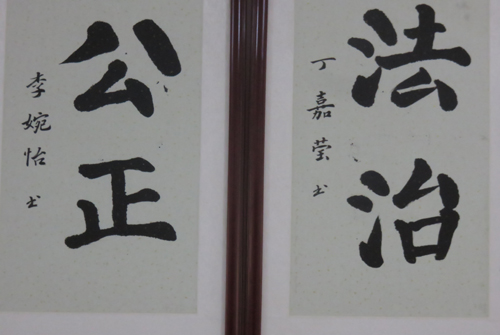 公正
李婉怡书
法治
丁嘉莹书